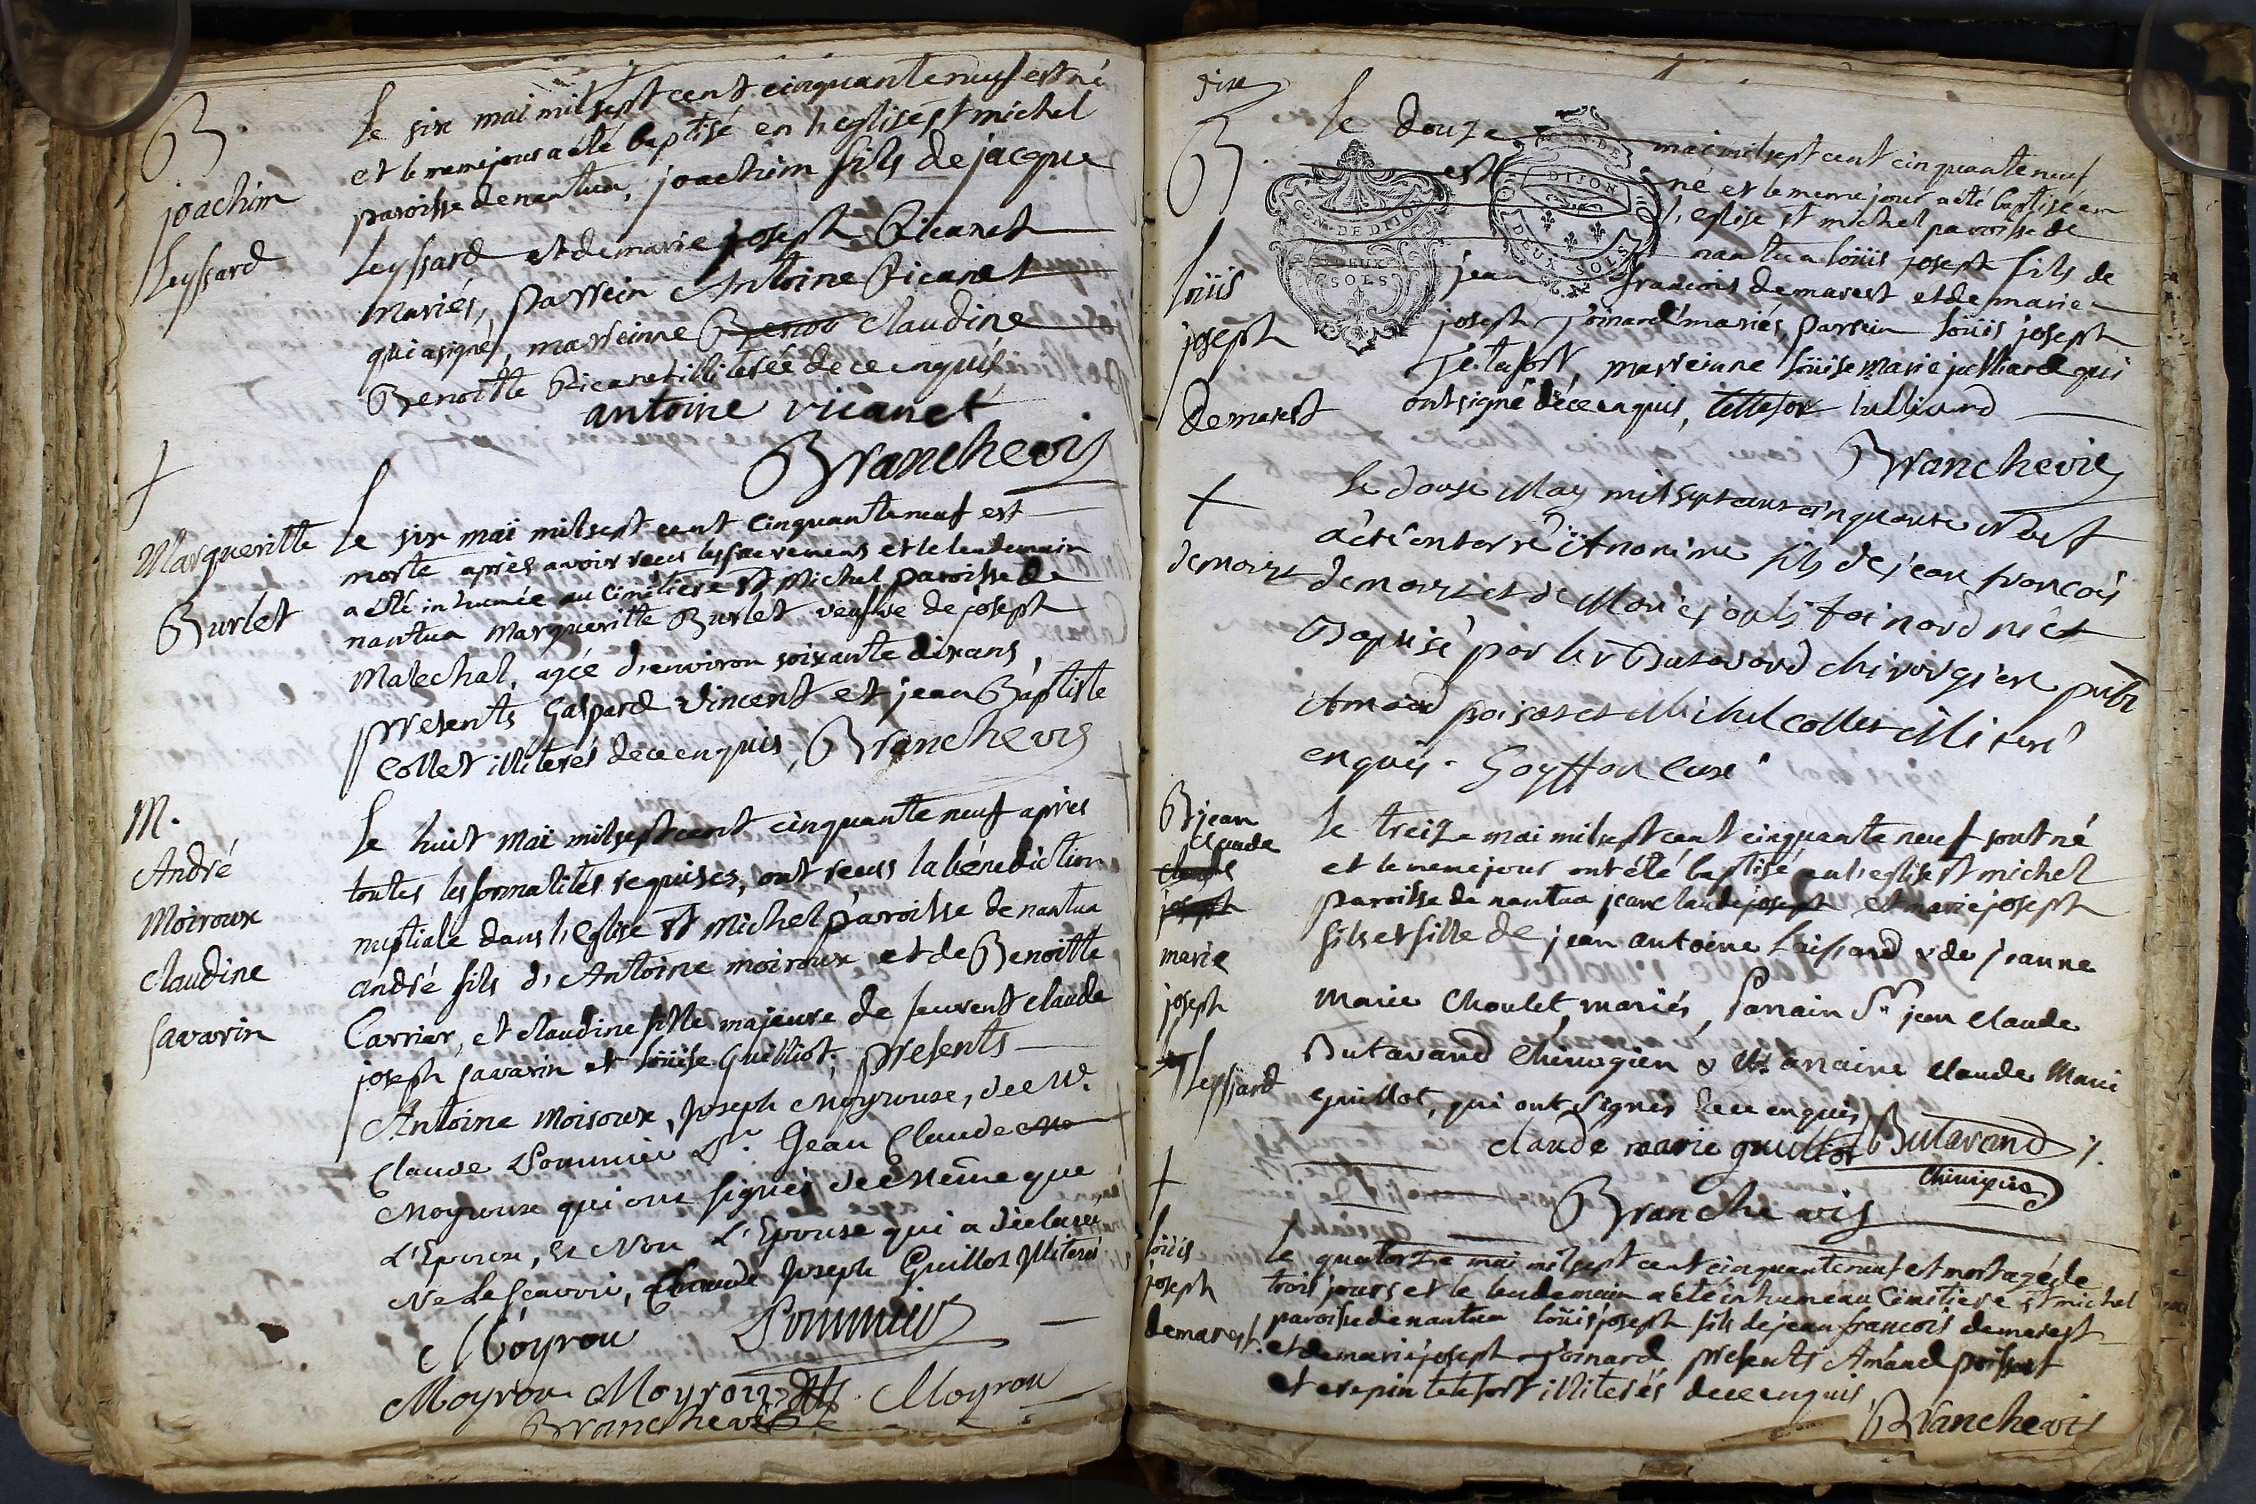 B
joachim
Leyssard
le six mai mil sept cent cinquante neuf est né
et le meme jour a été baptisé en l'eglise st michel
paroisse de nantua, joachim fils de jacque
Leyssard et de marie joseph Vicanet
mariés, parrein Antoine Vicanet
qui a signé, marreinne Benoo Claudine
Benoitte Vicanet illiterée de ce enquis
antoine vicanet
Branchevis
+
Margueritte
Burlet
le six mai mil sept cent cinquante neuf est
morte après avoir receu les sacremens et le lendemain
a été inhumée au Cimetiere st Michel paroisse de
nantua Margueritte Burlet veufve de joseph
Malechal, agée d'environ soixante dix ans,
presents Gaspard Vincent et jean Baptiste
Collet illiterés de ce enquis, Branchevis
M.
André
Moiroux
Claudine
Savarin
le huit mai mil sept cent cinquante neuf après
toutes les formalités requises, ont receus la bénediction
nuptiale dans l'Eglise st Michel paroisse de nantua
andré fils d'Antoine moiroux et de Benoitte
Carrier, et Claudine fille majeure de feu Claude
joseph Savarin et Loüise Guilliot, presents
Antoine Moiroux, Joseph Moyroux,
Claude Pommier Sr. Jean Claude Mo
Moyroux qui ont signés de même que
L'Epoux, et Non L'Epouse qui a déclaré
Ne Le scavoir, Claude Joseph Guillot illiteré
Moyrou Pommier
Moyrou Moyrou Moyrou
Branchevis
dixe
B.
Loüis
joseph
Demarest
le Douze mai mil sept cent cinquante neuf
est né et le meme jour a été baptisé en
l'eglise st michel paroisse de
nantua Loüis joseph fils de
jean francois demarest et de marie
joseph joinard mariés, parrein Loüis joseph
Tétafort, marreinne Loüise Marie julliard qui
ont signé de ce enquis, tettefort Julliard
GEN. DE DIJON
DEUX SOLS
GEN. DE DIJON
DEUX SOLS
Branchevis
+
demarest
Le douse May mil sept cent cinquante Neuf
a été enterré Anonime fils de jean francois
demarest et de Marie joseph foinard né et
Baptisé par le Sr Butavand chirurgien
Amand poisat et Michel Collet illiteré
enquis. Goyffon curé
B jean
claude
claude
joseph
marie
joseph
Leyssard
le treize mai mil sept cent cinquante neuf sont né
et le meme jour ont été baptisé en l'eglise st michel
paroisse de nantua jean claude joseph et marie joseph
fils et fille de jean antoine Laissard & de jeanne
Marie Choulet, mariés, Parrain Sr jean Claude
Butavand Chirurgien & Marraine Claude Marie
Guillot, qui ont Signés de ce enquis
claude marie guillot Butavand
Chirurgien
Branchevis
+
Loüis
joseph
demarest.
le quatorze mai mil sept cent cinquante neuf est mort agé de
trois jours et le lendemain a été inhumé au Cimetiere st michel
paroisse de nantua Loüis joseph fils de jean francois demarest
et de marie joseph joinard presents Amand poisat
et crepin tetefort illiterés de ce enquis
Branchevis